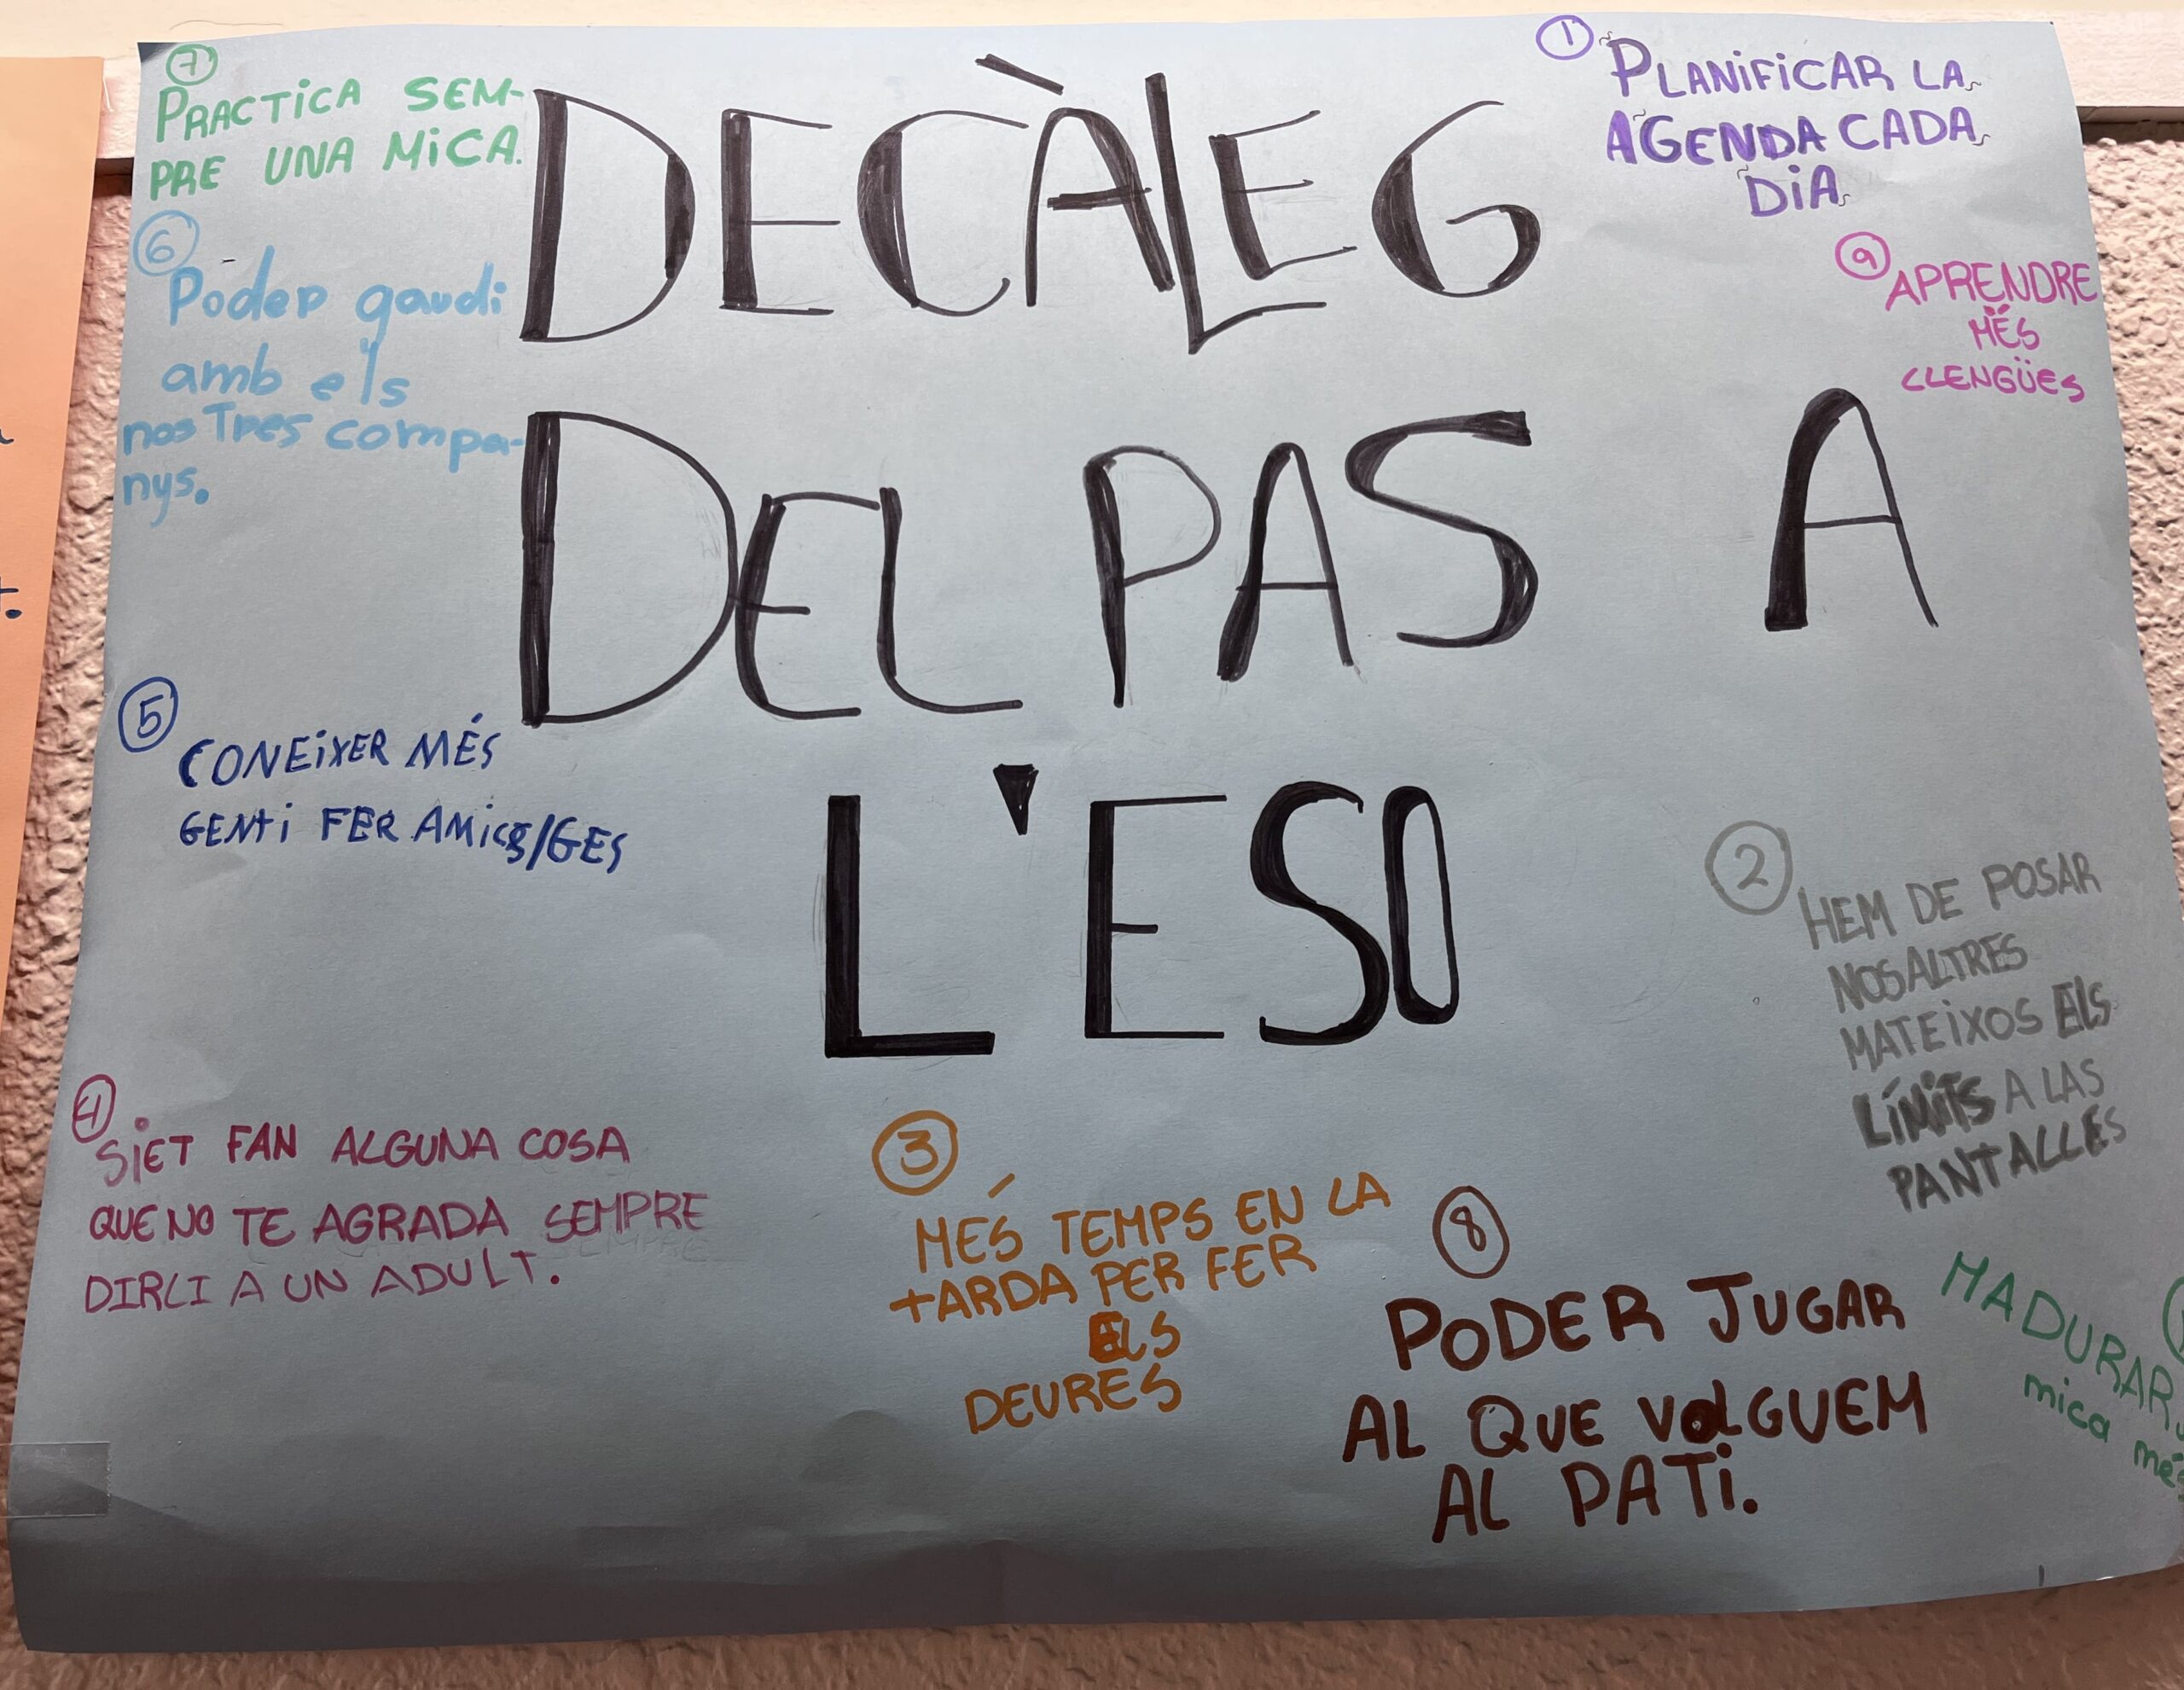 DECÀLEG
DEL PAS A
L'ESO
1
PLANiFiCAR LA
AGENDA CADA
DiA
9
APRENDRE
MÉS
LLENGÜES
2
HEM DE POSAR
NOSALTRES
MATEiXOS ELS
LÍMiTS A LAS
PANTALLES
MADURAR
mica més
8
PODER JUGAR
AL QUE VOLGUEM
AL PATi.
3
MÉS TEMPS EN LA
TARDA PER FER
ELS
DEURES
4
SiET FAN ALGUNA COSA
QUE NO TE AGRADA SEMPRE
DIRLI A UN ADULT.
5
CONEiXER MÉS
GENT i FER AMiCS/GES
6
Poder gaudi
amb els
nosTres compa-
nys.
7
PRACTiCA SEM-
PRE UNA MiCA.